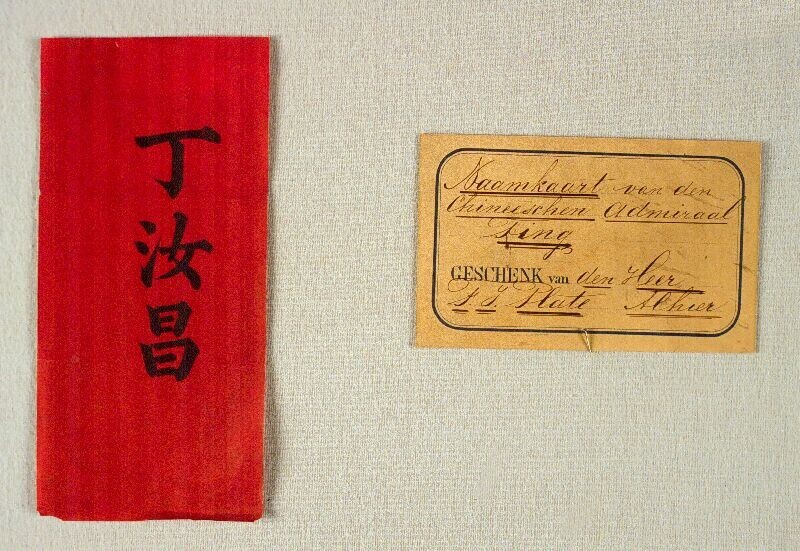 丁汝昌
Naamkaart van den
Chineeschen Admiraal
Ting
GESCHENK van den Heer
Plate Alhier